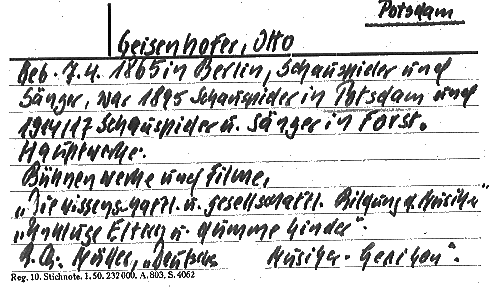 Potsdam
Geisenhofer, Otto
Geb. 7.4. 1865 in Berlin, Schauspieler und
Sänger, war 1895 Schauspieler in Potsdam und
1914/17 Schauspieler u. Sänger in Forst.
Hauptwerke:
Bühnenwerke und Filme,
„Die wissenschaftl. u. gesellschaftl. Bildung d. Musiker"
„Unkluge Eltern u. dumme Kinder".
Müller, „Deutsches Musiker-Lexikon".
Reg. 10. Stichnote. 1. 50. 232000. A. 803, S. 4062